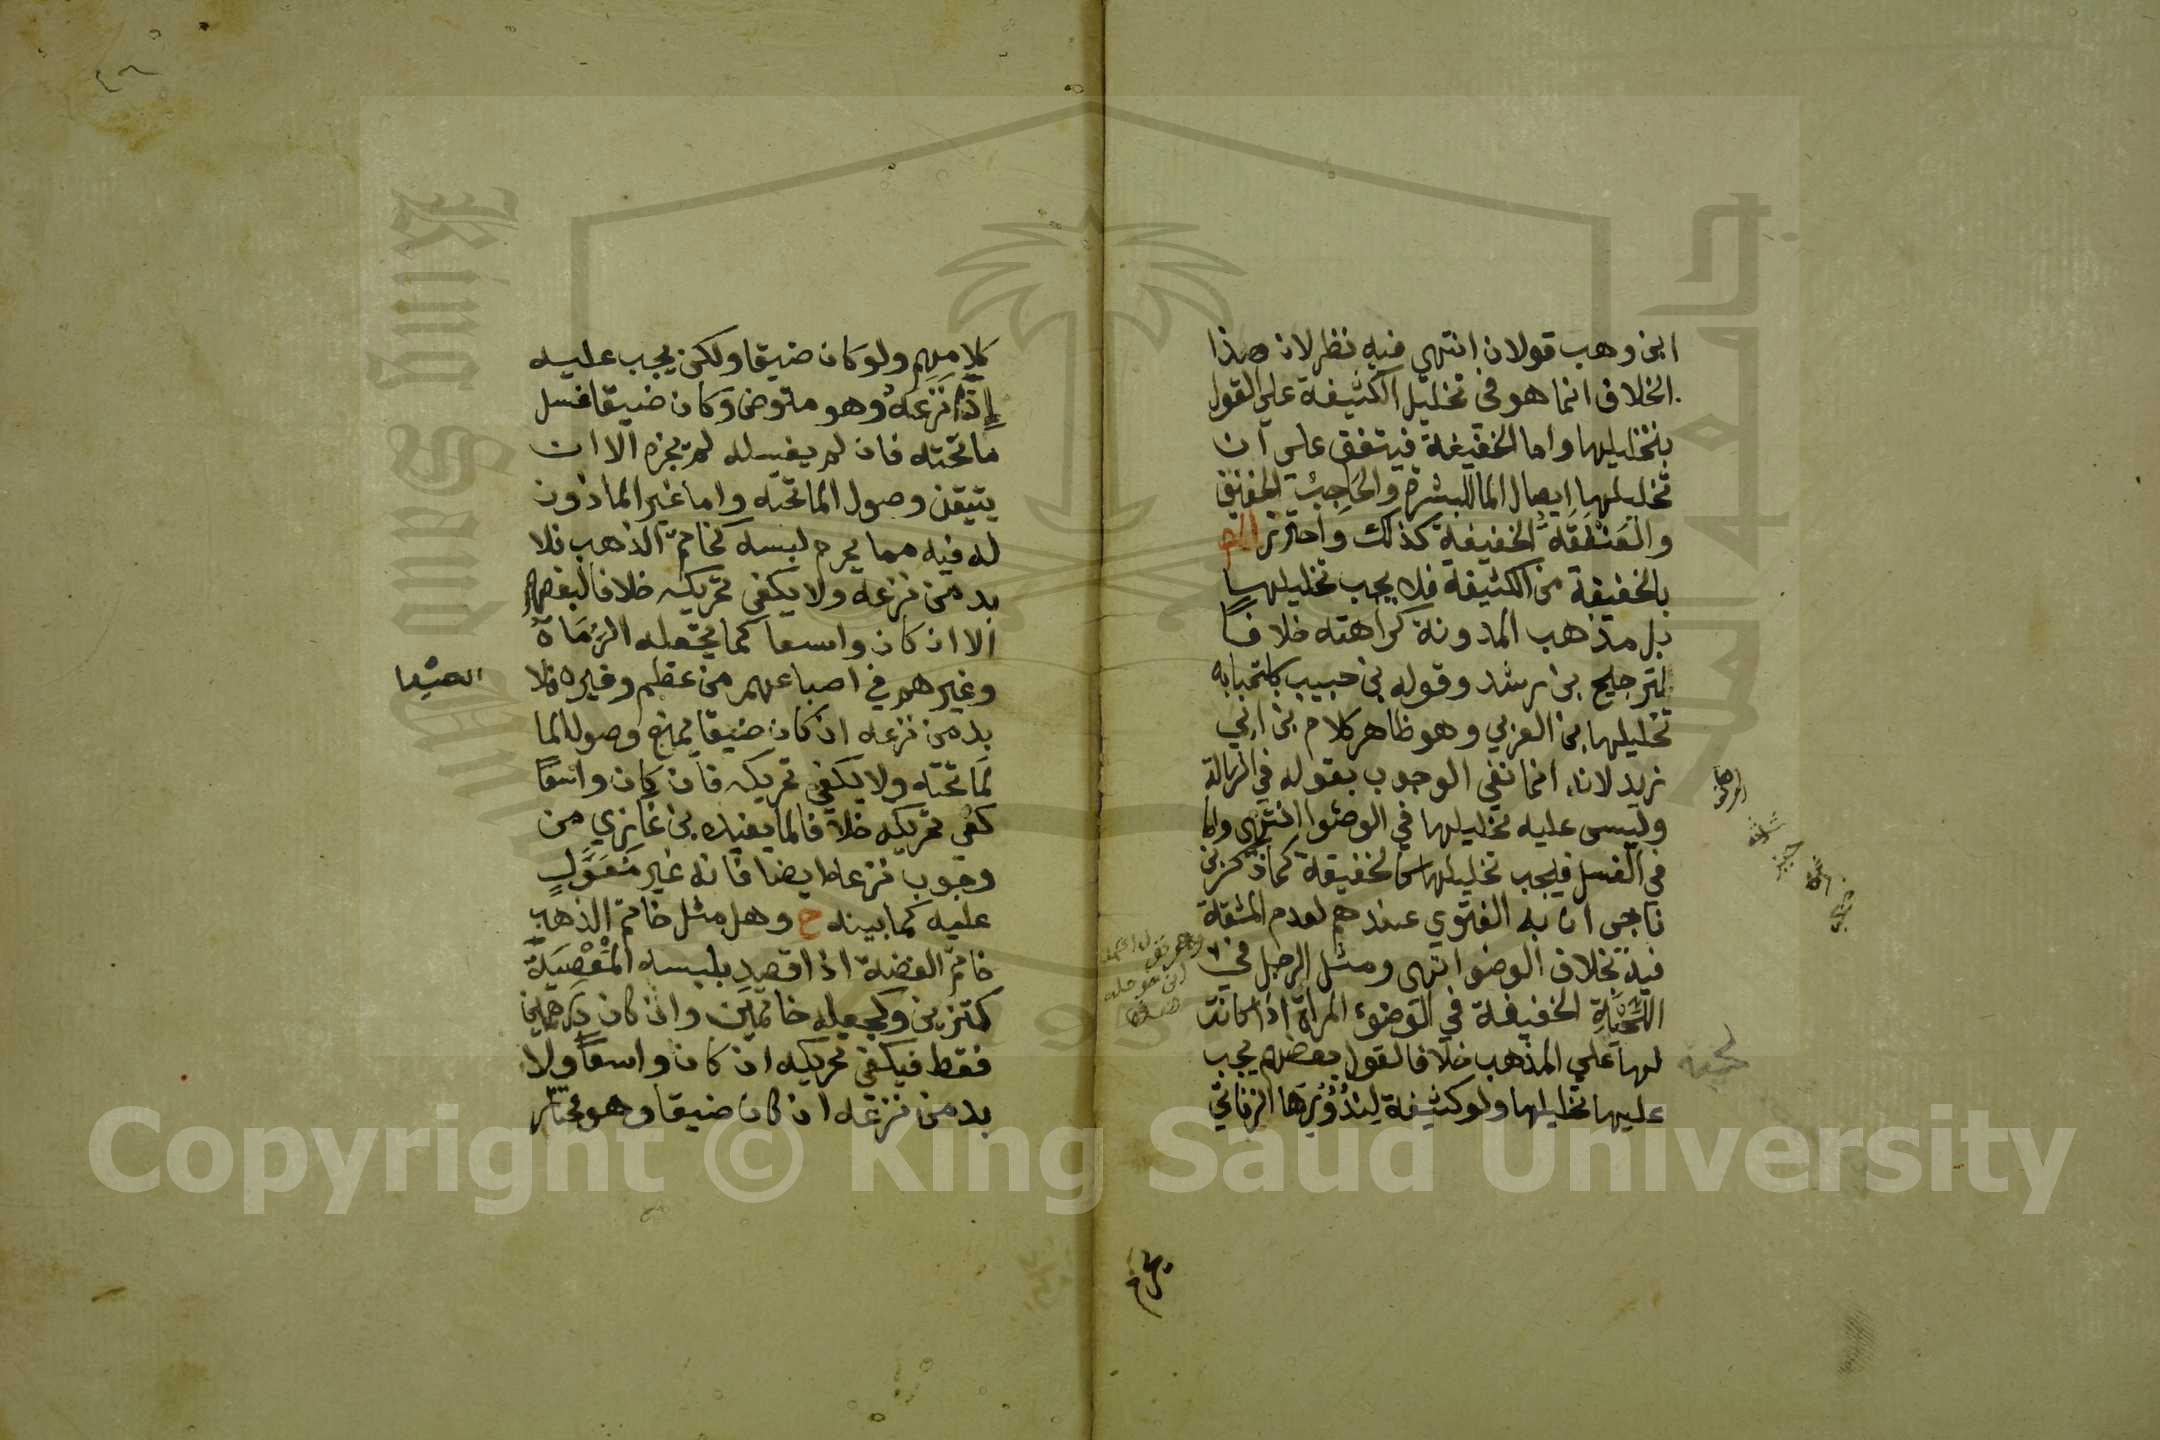 ابن وهب قولان انتهى فيه نظر لان هذا
الخلاف انما هو في تخليل الكثيفة علي القول
بتخليلها واما الخفيفة فيتفق علي ان
تخليلها ايصال الما للبشرة والحاجب الخفيف
والعنفقة الخفيفة كذلك واحترز
بالخفيفة من الكثيفة فلا يجب تخليلها
بل مذهب المدونة كراهته خلافا
لترجيح بن رشد وقوله بن حبيب باستحبابه
تخليلها بن العربي وهو ظاهر كلام بن ابي
زيد لانه انما نفي الوجوب بقوله في الرسالة
وليس عليه تخليلها في الوضوا انتهى واما
في الغسل فيجب تخليلها كالخفيفة كما ذكر بن
ناجي ان به الفتوي عندهم لعدم المشقة
فيه بخلاف الوضوا انتهى ومثل الرجل في
اللحية الخفيفة في الوضوء المراة اذا كانت
لها علي المذهب خلافا لقول بعضهم يجب
عليها تخليلها ولو كثيفة لندورها الزناتي
لحية
كلامهم ولو كان ضيقا ولكن يجب عليه
إذا نزعه وهو متوضئ وكان ضيقا غسل
ما تحته فان لم يغسله لم يجزه الا ان
يتيقن وصول الما تحته واما غير الماذون
له فيه مما يحرم لبسه كخاتم الذهب فلا
بد من نزعه ولا يكفي تحريكه خلافا لبعضهم
الا ان كان واسعا كما يجعله الرماة
وغيرهم في اصباعهم من عظم وغيره فلا
بد من نزعه ان كان ضيقا يمنع وصول الما
لما تحته ولا يكفي تحريكه فان كان واسعا
كفي تحريكه خلافا لما يفيده بن غازي من
وجوب نزعه ايضا فانه غير معول
عليه كما بينه ح وهل مثل خاتم الذهب
خاتم الفضة اذا قصد بلبسه المعصية
كتزين وكجعله خاتمين وان كان درهمين
فقط فيكفي تحريكه ان كان واسعا ولا
بد من نزعه ان كان ضيقا وهو
Copyright © King Saud University
King Saud University